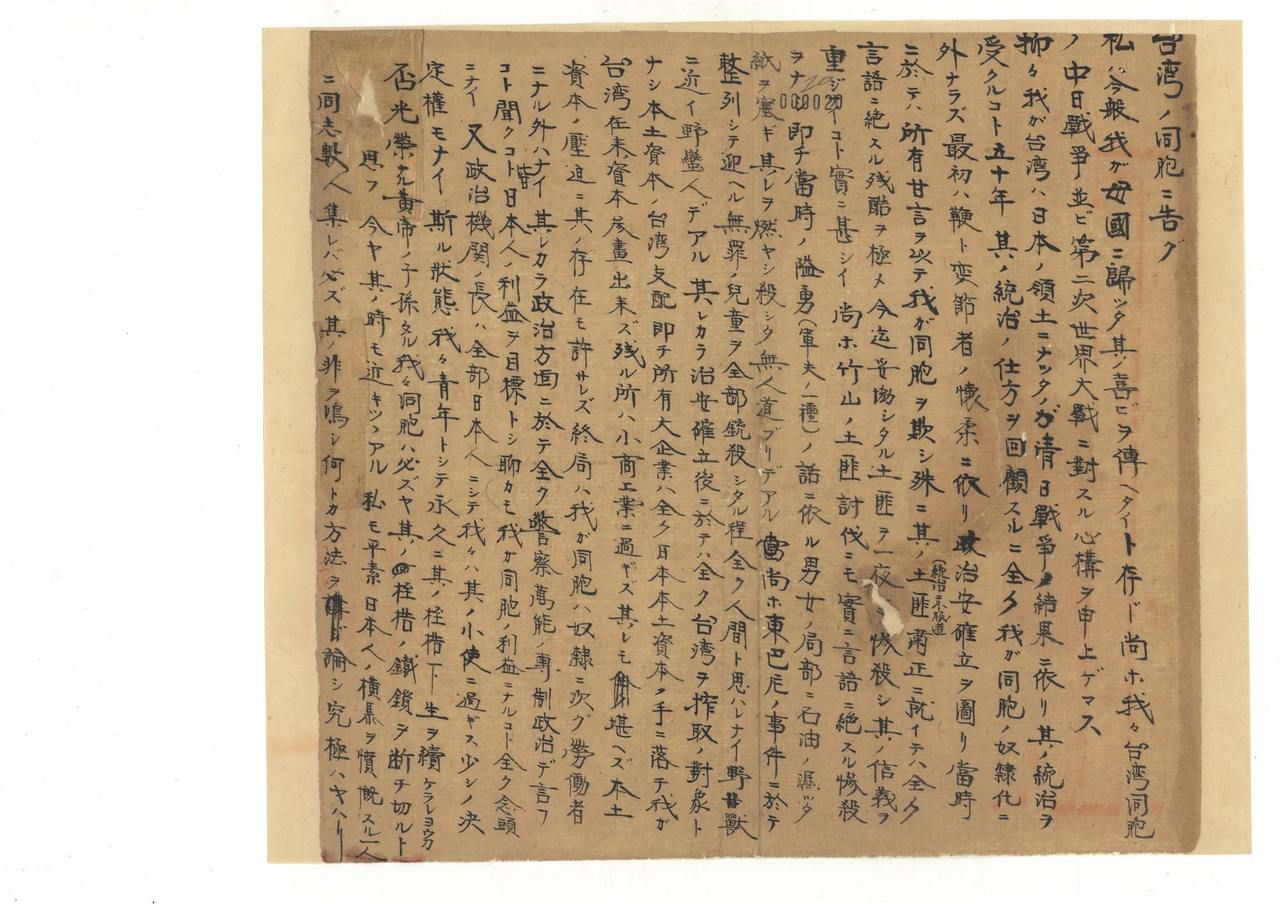 台湾ノ同胞ニ告グ
私ハ今般我ガ母國ニ歸ツタ其ノ喜ビヲ傳ヘタイト存ド尚ホ我々台湾同胞
ノ中日戰爭並ビ第二次世界大戰ニ對スル心構ヲ申上ゲマス
抑々我ガ台湾ハ日本ノ領土ニナツタノガ清日戰爭ノ結果ニ依リ其ノ統治ヲ
受クルコト五十年 其ノ統治ノ仕方ヲ回顧スルニ全ク我ガ同胞ノ奴隷化ニ
外ナラズ 最初ハ鞭ト変節者ノ懐柔ニ依リ政治安確立ヲ圖リ當時
ニ於テハ所有甘言ヲ以テ我ガ同胞ヲ欺シ殊ニ其ノ土匪(統治ニ不服道)粛正ニ就イテハ全ク
言語ニ絶スル残酷ヲ極メ今迄妥協シタル土匪ヲ一夜ニ惨殺シ其ノ信義ヲ
重ジナイコト實ニ甚シイ 尚ホ竹山ノ土匪討伐ニモ實ニ言語ニ絶スル惨殺
000020
ヲナシ即チ當時ノ隘勇(軍夫ノ一種)ノ話ニ依ル男女ノ局部ニ石油ノ濕ツタ
紙ヲ塞ギ其レヲ燃ヤシ殺シタ無人道ブリデアル 尚ホ東巴尼ノ事件ニ於テ
整列シテ迎ヘル無罪ノ兒童ヲ全部銃殺シタル程全ク人間ト思ハレナイ野獸
ニ近イ野蠻人デアル 其レカラ治安確立後ニ於テハ全ク台湾ヲ搾取ノ對象ト
ナシ本土資本ノ台湾支配即チ所有大企業ハ全ク日本本土資本ノ手ニ落チ我ガ
台湾在来資本参畫出来ズ残ル所ハ小商工業ニ過ギズ其レモ堪ヘズ本土
資本ノ壓迫ニ其ノ存在モ許サレズ終局ハ我ガ同胞ハ奴隷ニ次グ勞働者
ニナル外ハナイ 其レカラ政治方面ニ於テ全ク警察萬能ノ專制政治デ言フ
コト聞クコト皆日本人ノ利益ヲ目標トシ聊カモ我ガ同胞ノ利益ニナルコト全ク念頭
ニナイ 又政治機関ノ長ハ全部日本人ニシテ我々ハ其ノ小使ニ過ギス少シノ決
定權モナイ 斯ル狀態我々青年トシテ永久ニ其ノ桎梏下生ヲ續ケラレヨウカ
否光榮ナル黄帝ノ子孫タル我々同胞ハ必ズヤ其ノ桎梏ノ鐵鎖ヲ断チ切ルト
思フ 今ヤ其ノ時モ近キツヽアル 私モ平素日本人ノ横暴ヲ憤慨スル一人
ニ同志數人集レバ必ズ其ノ非ヲ鳴シ何トカ方法ヲ論シ究極ハヤハリ